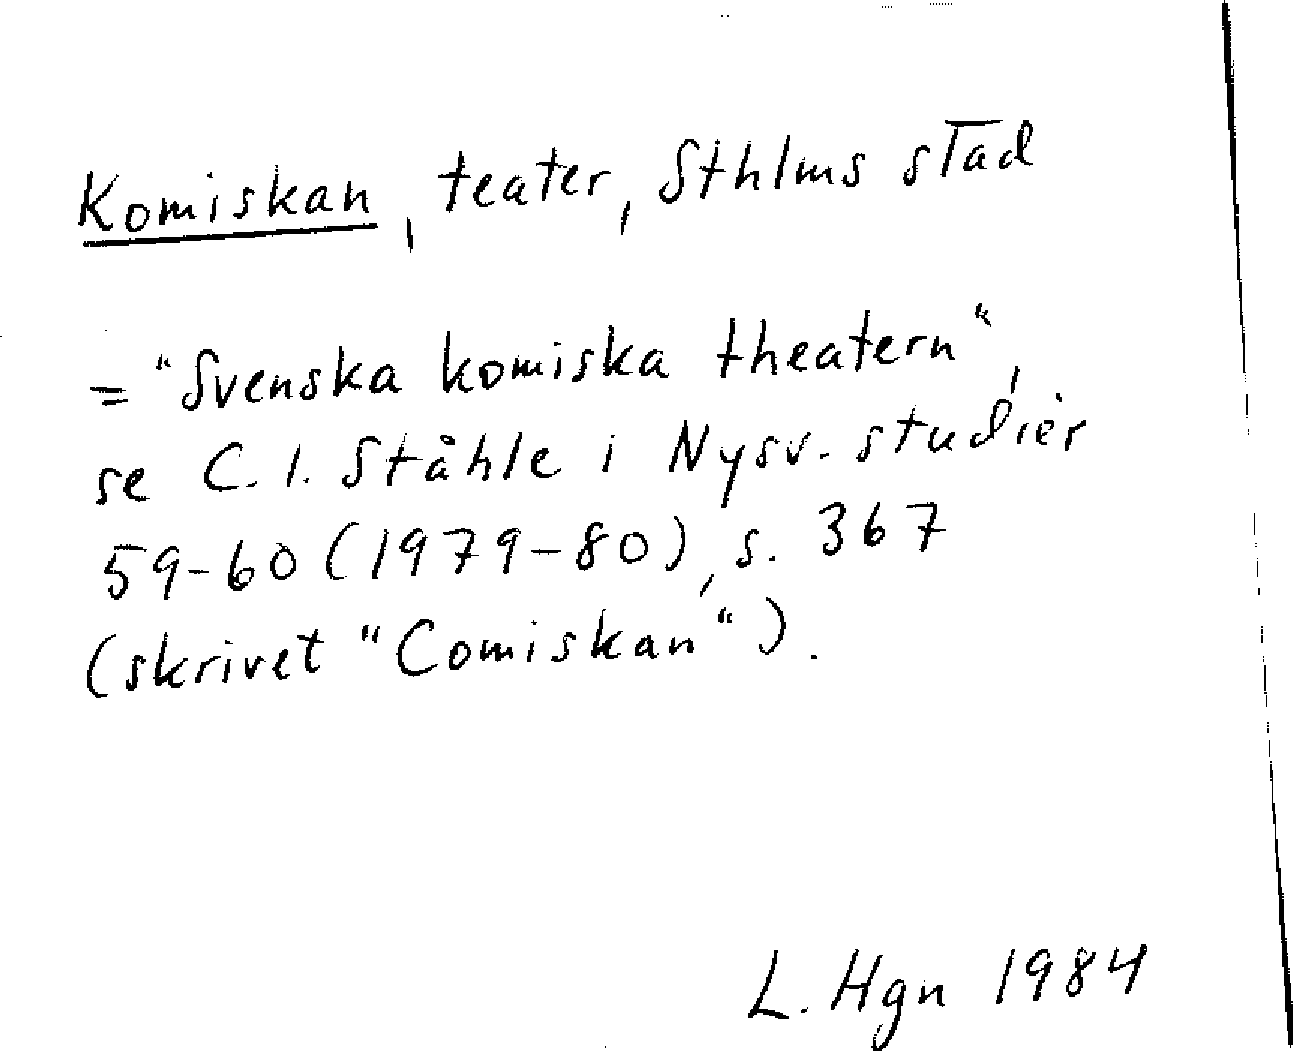 Komiskan, teater, Sthlms stad
= "Svenska komiska theatern",
se C. I. Ståhle i Nysv. studier
59-60 (1979-80), s. 367
(skrivet "Comiskan").
L. Hgn 1984